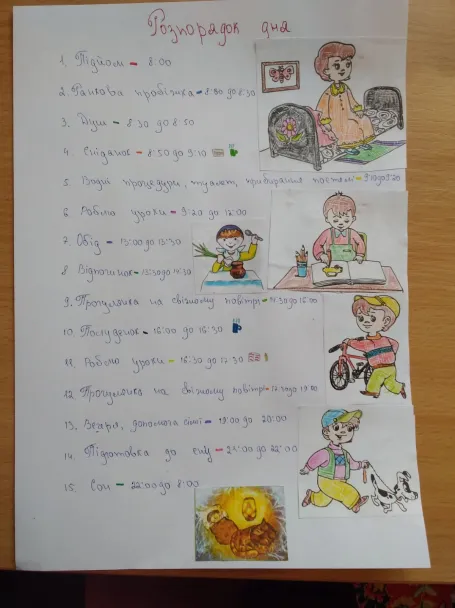 Розпорадок дна
1. Підйом - 8:00
2. Ранкова пробіжка - 8:00 до 8:30
3. Душ - 8:30 до 8:50
4. Сніданок - 8:50 до 9:10
5. Водні процедури, туалет, прибирання постелі - 9:10 до 9:20
6. Роблю уроки - 9:20 до 12:00
7. Обід - 13:00 до 13:30
8. Відпочинок - 13:30 до 14:30
9. Прогулянка на свіжому повітрі - 14:30 до 16:00
10. Полуденок - 16:00 до 16:30
11. Роблю уроки - 16:30 до 17:30
12. Прогулянка на свіжому повітрі - 17:30 до 19:00
13. Вечеря, допомога сімї - 19:00 до 20:00
14. Підготовка до сну - 21:00 до 22:00
15. Сон - 22:00 до 8:00